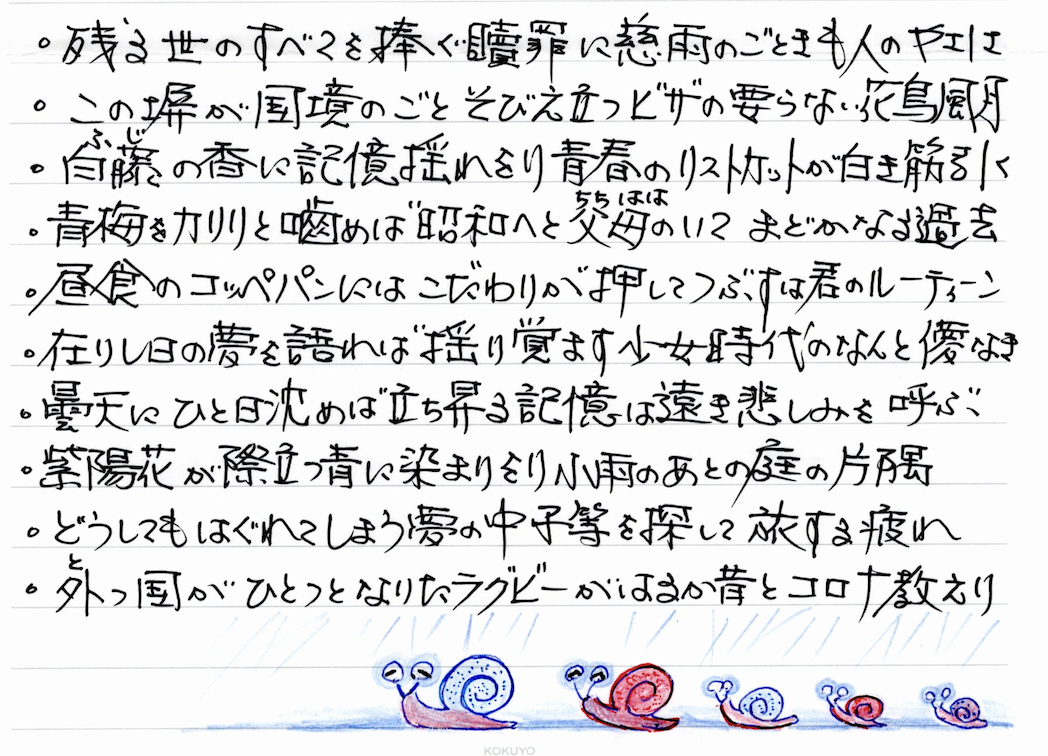 ・残る世のすべてを捧ぐ贖罪に慈雨のごときも人の
・この塀が国境のごとそびえ立つビザの要らない花鳥風月
ふじ
・白藤の香に記憶揺れをり青春のリストカットが白き筋引く
ちちはは
・青梅をカリリと噛めば昭和へと父母のいて まどかなる過去
・昼食のコッペパンにはこだわりが押してつぶすは君のルーティーン
・在りし日の夢を語れば揺り覚ます少女時代のなんと儚なき
・曇天にひと日沈めば立ち昇る記憶は遠き悲しみを呼ぶ
・紫陽花が際立つ青に染まりをり小雨のあとの庭の片隅
・どうしてもはぐれてしまう夢の中子等を探して旅する疲れ
と
・外つ国がひとつとなりたラグビーがはるか昔とコロナ教えり
KOKUYO